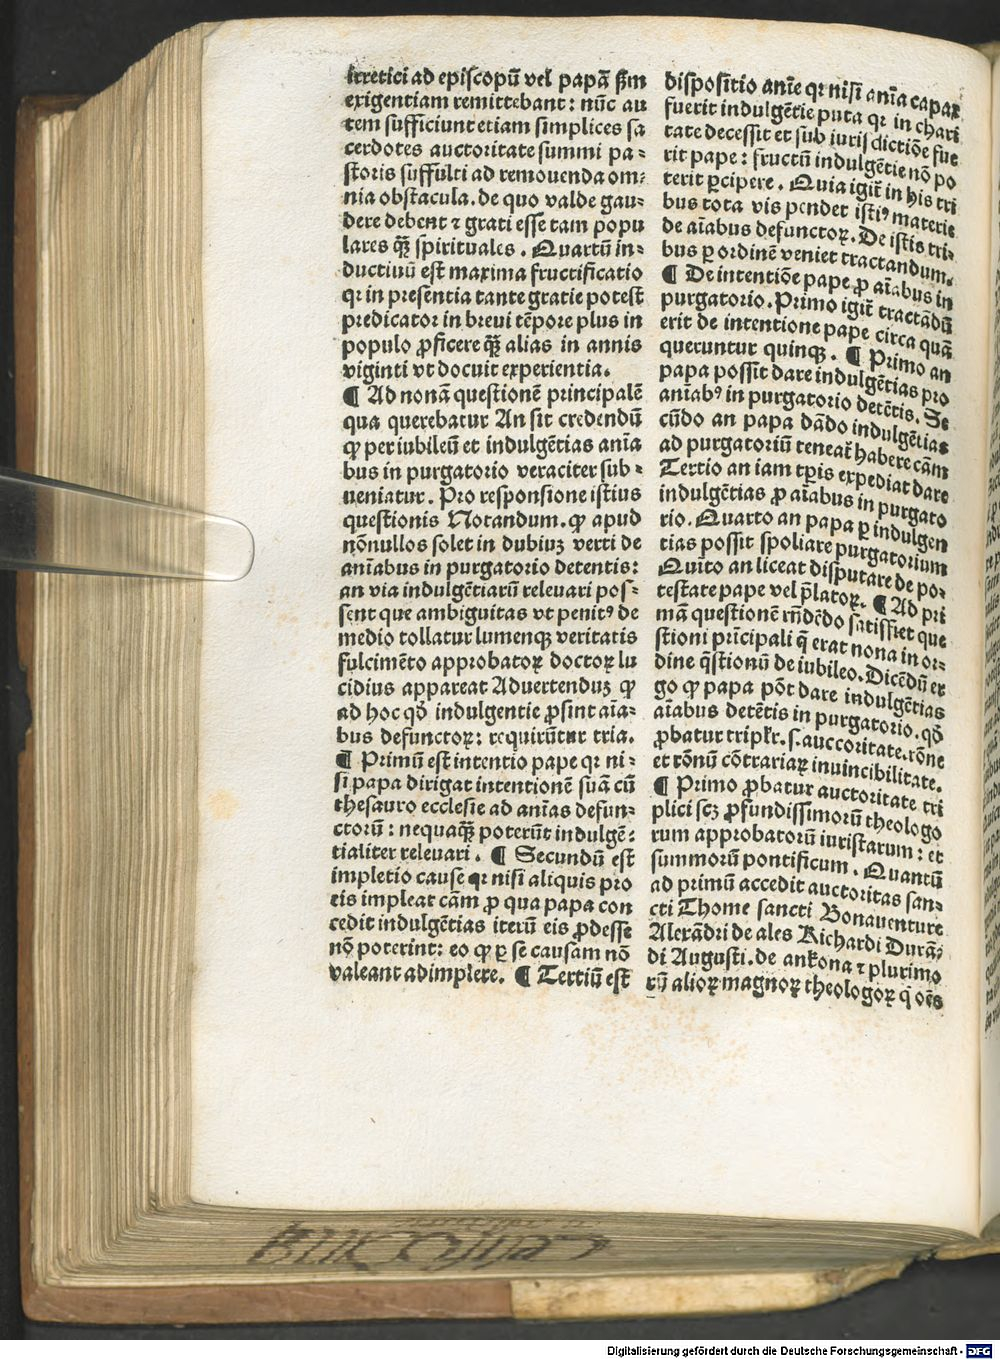 irretici ad episcopū vel papā ẜm
exigentiam remittebant: nūc au
tem sufficiunt etiam simplices sa
cerdotes auctoritate summi pa⸗
storis suffulti ad remouenda om⸗
nia obstacula. de quo valde gau⸗
dere debent ⁊ grati esse tam popu
lares qȝ̄ spirituales. Quartū in⸗
ductiuū est maxima fructificatio
qꝛ in presentia tante gratie potest
predicator in breui tēpore plus in
populo ꝓficere qȝ̄ alias in annis
viginti vt docuit experientia.
¶ Ad nonā questionē principalē
qua querebatur An sit credendū
ꝙ per iubileū et indulgētias anīa
bus in purgatorio veraciter sub⸗
ueniatur. Pro responsione istius
questionis Notandum. ꝙ apud
nōnullos solet in dubiuȝ verti de
anīabus in purgatorio detentis:
an via indulgētiarū releuari pos⸗
sent que ambiguitas vt penitꝰ de
medio tollatur lumenqȝ veritatis
fulcimēto approbatoꝝ doctoꝝ lu
cidius appareat Aduertenduȝ ꝙ
ad hoc qō indulgentie ꝓsint aīa⸗
bus defunctoꝝ: requirūtur tria.
¶ Primū est intentio pape qꝛ ni⸗
si papa dirigat intentionē suā cū
thesauro ecclesie ad anīas defun⸗
ctorū: nequaqȝ̄ poterūt indulgē⸗
tialiter releuari. ¶ Secundū est
impletio cause qꝛ nisi aliquis pro
eis impleat cām ꝓ qua papa con
cedit indulgētias iterū eis ꝓdesse
nō poterint: eo ꝙ ꝑ se causam nō
valeant adimplere. ¶ Tertiū est
dispositio anīe qꝛ nisi anīa capax
fuerit indulgētie puta qꝛ in chari
tate decessit et sub iurisdictiōe fue
rit pape: fructū indulgētie nō po
terit ꝑcipere. Quia igit̄ in his tri
bus tota vis pendet istiꝰ materie
de aīabus defunctoꝝ. De istis tri⸗
bus ꝑ ordinē veniet tractandum.
¶ De intentiōe pape ꝓ aīabus in
purgatorio. Primo igit̄ tractādū
erit de intentione pape circa quā
queruntur quinqȝ. ¶ Primo an
papa possit dare indulgētias pro
anīabꝰ in purgatorio detētis. Se
cūdo an papa dādo indulgētias
ad purgatoriū teneat̄ habere cām
Tertio an iam tꝑis expediat dare
indulgētias ꝓ aīabus in purgato
rio. Quarto an papa ꝑ indulgen
tias possit spoliare purgatorium
Quīto an liceat disputare de po⸗
testate pape vel p̄latoꝝ. ¶ Ad pri
mā questionē rn̄dēdo satisfiet que
stioni prīcipali q̄ erat nona in or⸗
dine q̄stionū de iubileo. Dicēdū er
go ꝙ papa pōt dare indulgētias
aīabus detētis in purgatorio. qō
ꝓbatur triplr̄. s. auctoritate. rōne
et rōnū cōtrariaꝝ inuincibilitate.
¶ Primo ꝓbatur auctoritate tri
plici scȝ ꝓfundissimorū theologo
rum approbatorū iuristarum: et
summorū pontificum. Quantū
ad primū accedit auctoritas san⸗
cti Thome sancti Bonauenture
Alexādri de ales Richardi Durā⸗
di Augusti. de ankona ⁊ plurimo
rū alioꝝ magnoꝝ theologoꝝ q̇ oēs
Digitalisierung gefördert durch die Deutsche Forschungsgemeinschaft - DFG